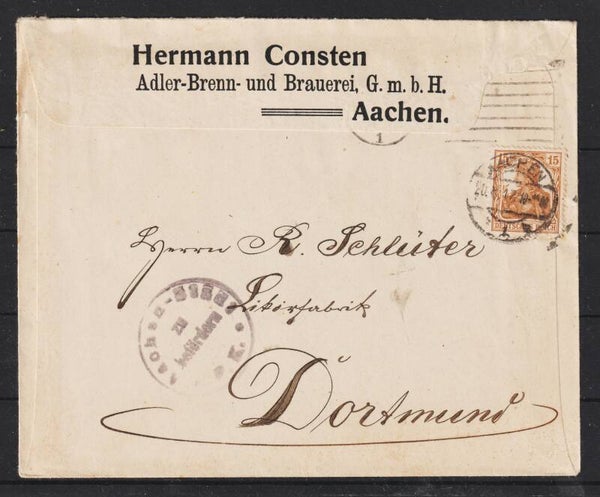 Hermann Consten
Adler-Brenn- und Brauerei, G. m. b. H.
Aachen.
1
15
AACHEN
1
Herrn R. Schlüter
Likörfabrik
Dortmund
zu
befördern